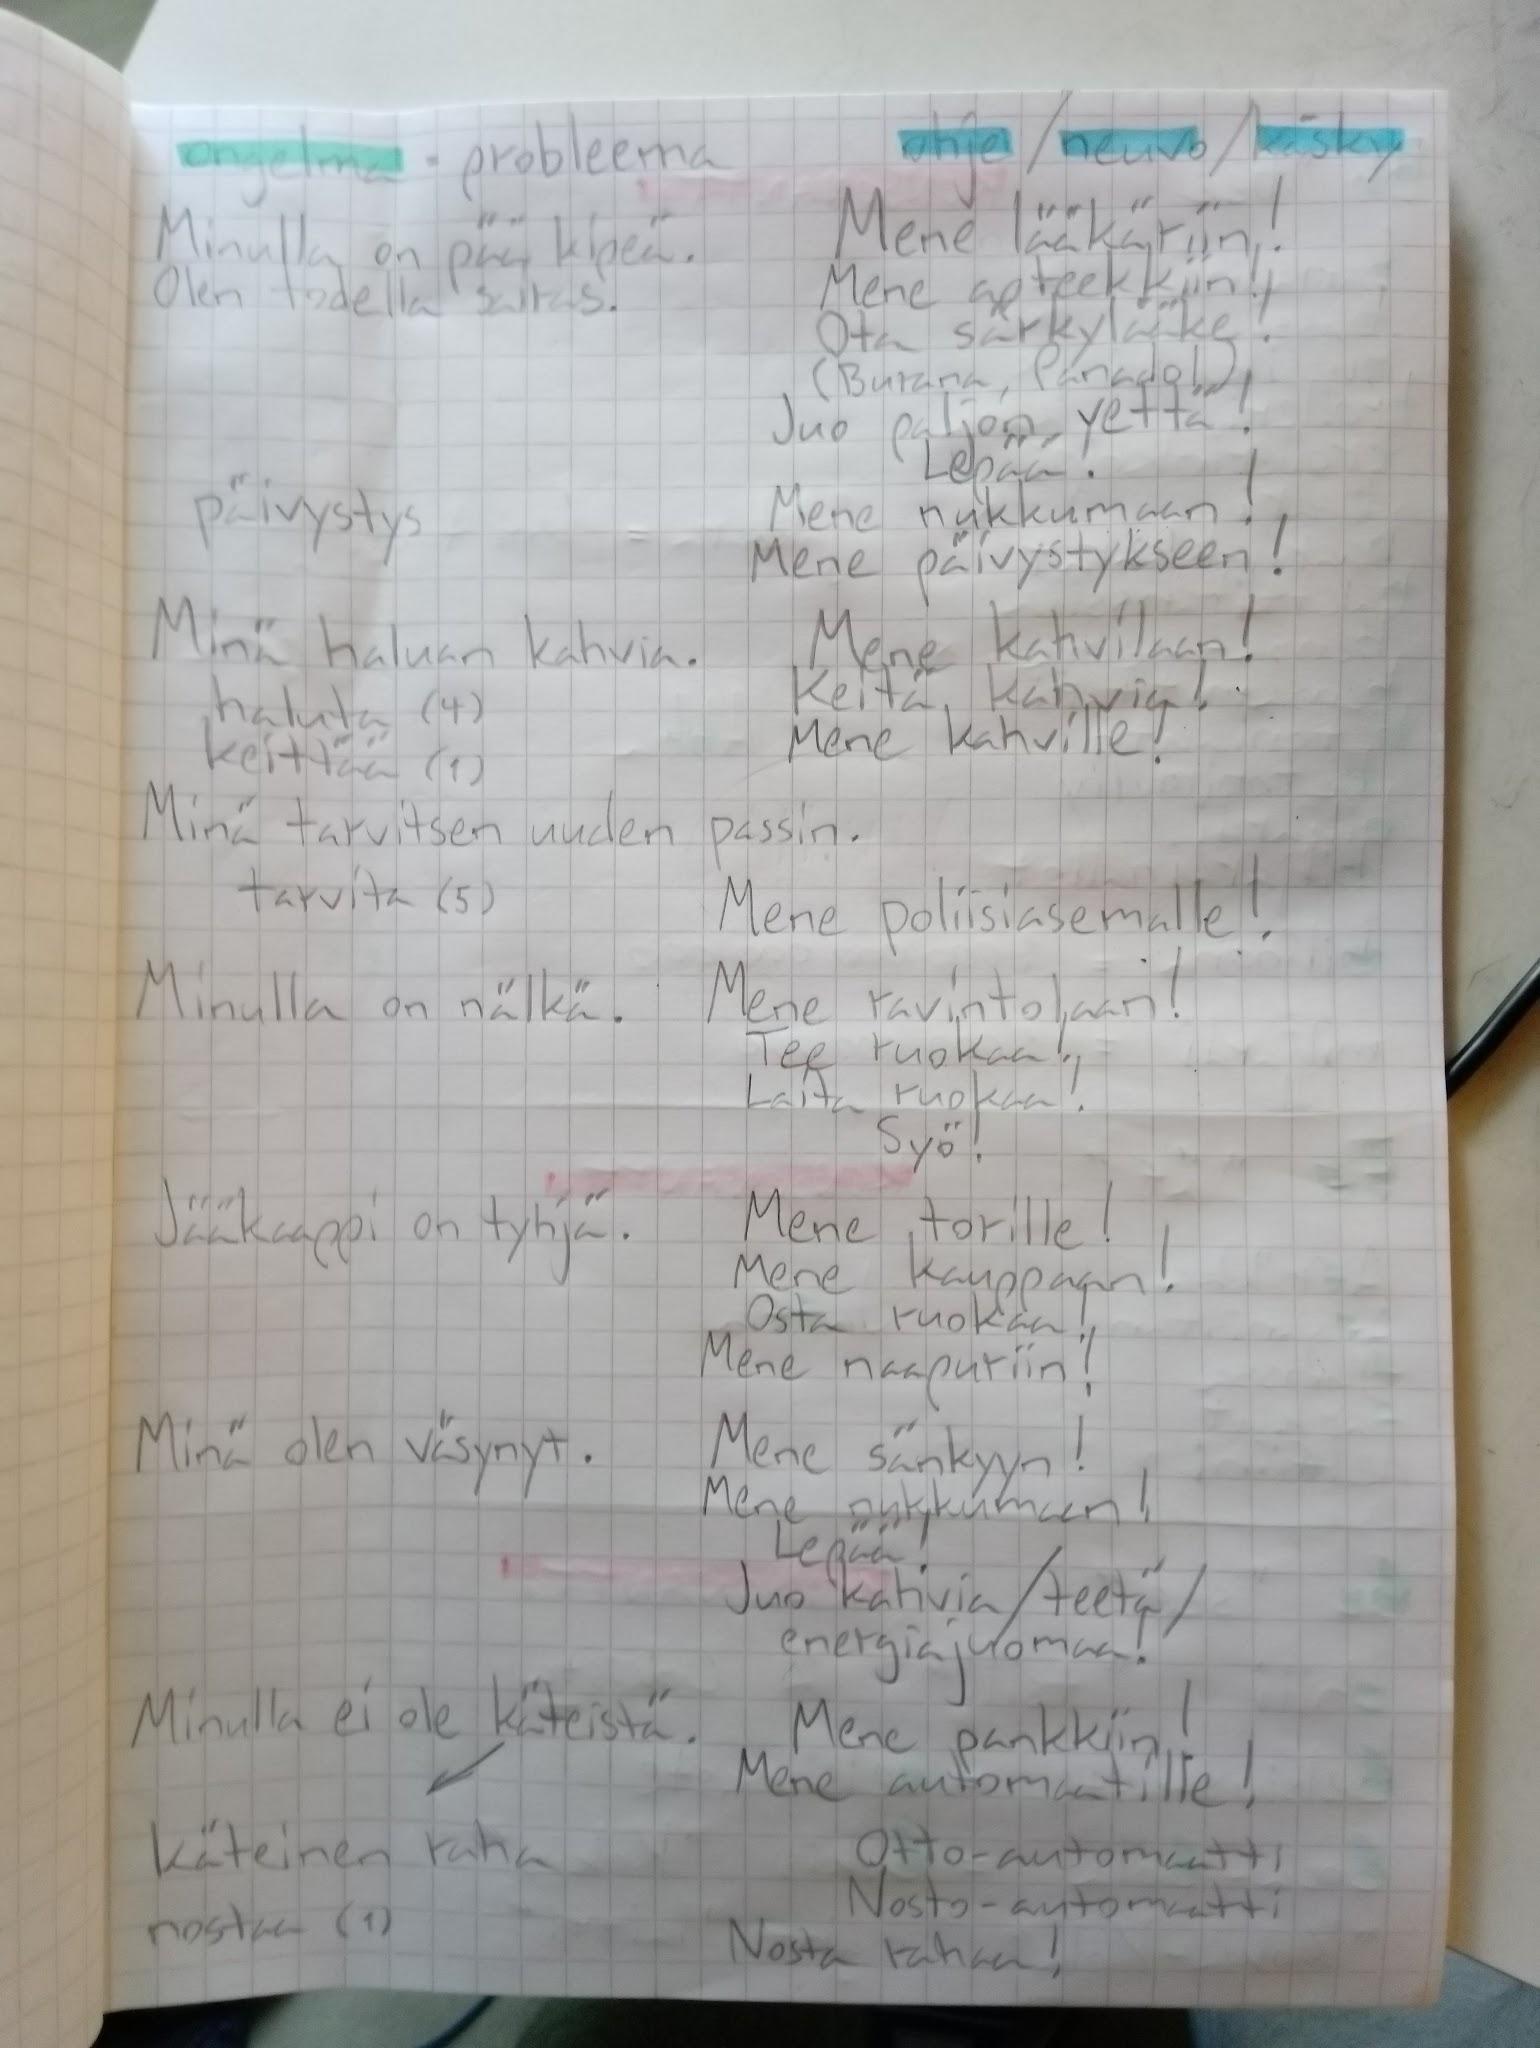 ongelma = probleema ohje / neuvo / käsky
Minulla on pää kipeä. Mene lääkäriin!
Olen todella sairas. Mene apteekkiin!
Ota särkylääke!
(Burana, Panadol)
Juo paljon vettä!
Lepää!
päivystys Mene nukkumaan!
Mene päivystykseen!
Minä haluan kahvia. Mene kahvilaan!
haluta (4) Keitä kahvia!
keittää (1) Mene kahville!
Minä tarvitsen uuden passin.
tarvita (5) Mene poliisiasemalle!
Minulla on nälkä. Mene ravintolaan!
Tee ruokaa!
Laita ruokaa!
Syö!
Jääkaappi on tyhjä. Mene torille!
Mene kauppaan!
Osta ruokaa!
Mene naapuriin!
Minä olen väsynyt. Mene sänkyyn!
Mene nukkumaan!
Lepää!
Juo kahvia/teetä/
energiajuomaa!
Minulla ei ole käteistä. Mene pankkiin!
Mene automaatille!
käteinen raha Otto-automaatti
Nosto-automaatti
nostaa (1) Nosta rahaa!